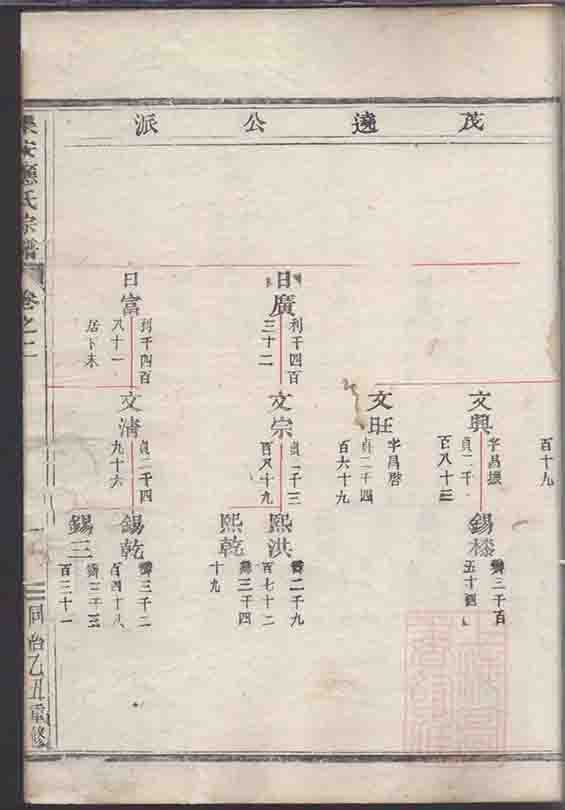 茂遠公派
百十九
文興
字昌振
貞二千
百八十三
錫㭐
三千百
五十四
文旺
字昌啓
貞二千四
百六十九
曰廣
利千四百
三十二
文宗
貞二千三
百八十九
熙洪
二千九
百七十二
熙乾
三千四
十九
曰富
利千四百
八十一
居卜未
文清
貞二千四
九十六
錫乾
三千二
百四十八
錫三
百三十一
安應氏宗譜
卷之二
一
同治乙丑重修